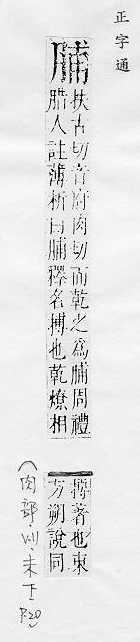 正字通
脯
扶古切音府肉切而乾之為脯周禮
腊人註薄析曰脯釋名搏也乾燥相
搏著也東
方朔說同
(肉部, 未下 P.20)